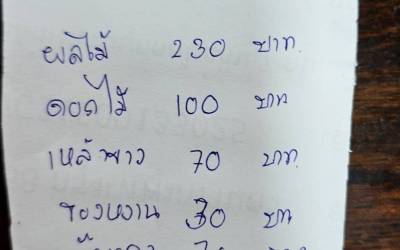 ผลไม้ 230 บาท.
ดอกไม้ 100 บาท
เหล้าขาว 70 บาท.
ของหวาน 30 บาท